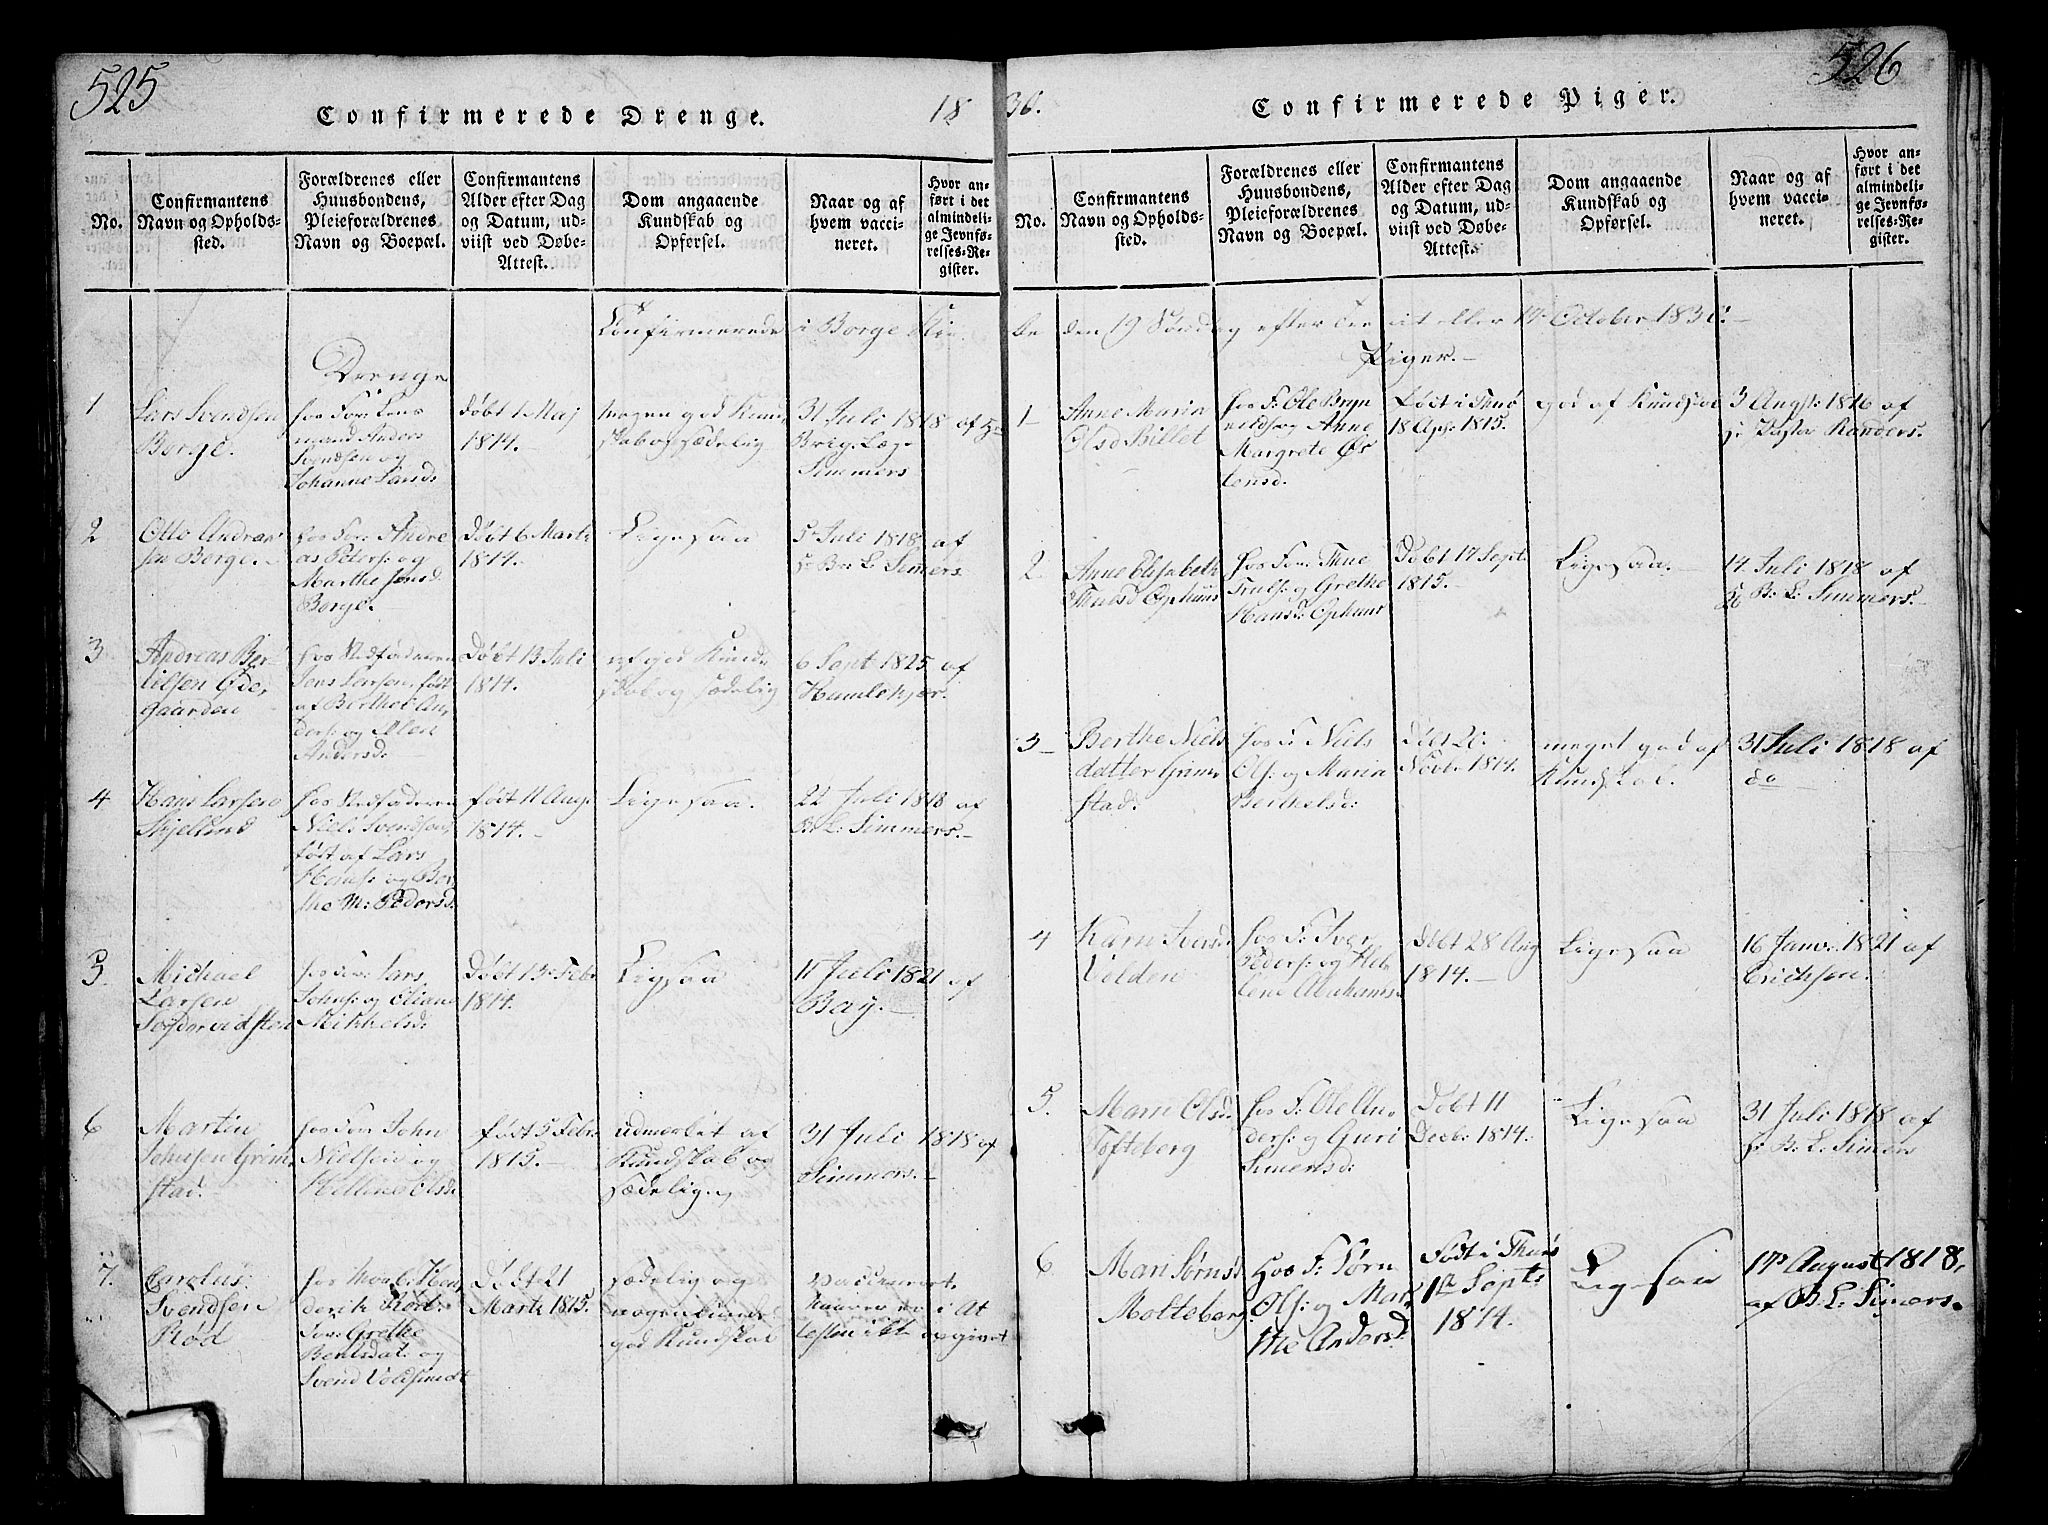 525
Confirmerede Drenge.
18
No.
Confirmantens
Navn og Opholds-
sted.
Forældrenes eller
Huusbondens,
Pleieforældrenes
Navn og Boepæl.
Confirmantens
Alder efter Dag
og Datum, ud-
viist ved Døbe-
Attest.
Dom angaaende
Kundskab og
Opførsel.
Naar og af
hvem vacci-
neret.
Hvor an-
ført i det
almindeli-
ge Jevnfø-
relses-Re-
gister.
Confirmerede i Borge
Drenge
1
Lars Svendsen
Borge.
hos For: Lens
mand Anders
Svendsen og
Johanne Larsd:
Døbt 1 Maj
1814.
megen god Kund
skab og sædelig
31 Juli 1818 af Hr
Brig. Læge
Simmers
2
Otto Andrea
sen Borge.
hos For: Andre
as Peters: og
Marthe Jensd:
Borge.
Døbt 6 Marti
1814.
Ligesaa
5 Juli 1818 af
Hr B: L: Simers
3
Andreas Ber
tilsen Øde,
gaarden
hos Stedfaderen
Jens Larsen, født
af Berthel An,
ders: og Ellen
Andersd:
Døbt 13 Juli
1814.
af god Kund
skab og sædelig
6 Sept 1825 af
Humlekjær.
4
Hans Larsen
Skjellind
hos Stedfaderen
Niels Svendsen,
født af Lars
Hans: og Ber
the M: Pedersd:
født 11 Aug:
1814.
Ligesaa.
22 Juli 1818 af
B: L: Simmers.
5.
Michael
Larsen
hos For: Lars
Johns: og Eliane
Mikkelsd:
Døbt 13 Feb:
1814.
Ligesaa
11 Juli 1821 af
Bay.
6
Martin
Johnsen Grim
stad.
hos For: John
Nielsen og
Helline Olsd:
født 5 Febr:
1815.
udmerket af
Kundskab og
sædelig
31 Juli 1818 af
Simmers.
7.
Carolus
Svendsen
Rød
hos Morb: Hen
derik Rød:
For: Grethe
Bentsdat: og
Svend Voldsundt
Døbt 21
Marti 1815.
sædelig og
nogenlunde
god Kundskab
Vaccineret.
naar er i At
testen ikke opgivet
526
36.
Confirmerede Piger.
No.
Confirmantens
Navn og Opholds-
sted.
Forældrenes eller
Huusbondens,
Pleieforældrenes
Navn og Boepæl.
Confirmantens
Alder efter Dag
og Datum, ud-
viist ved Døbe-
Attest.
Dom angaaende
Kundskab og
Opførsel.
Naar og af
hvem vacci-
neret.
Hvor an-
ført i det
almindeli-
ge Jevnfø-
relses-Re-
gister.
den 19 Søndag efter Tre eller 17 October 1830.
Piger.
1
Anne Maria
Olsd Billet
hos F: Ole Bryn
nilds: og Anne
Margrete Øs
tensd.
Født i Thrø
18 Ap: 1815.
god af Kundskab
3 Augst: 1816 af
H: Pastor Randers.
2.
Anne Elisabeth
Thulsd Ophuus
hos For: Thue
Truls: og Grethe
Hansd: Ophuus
Døbt 17 Sept:
1815.
Ligesaa.
14 Juli 1818 af
B: L: Simmers.
3
Berthe Niels
datter Grim
stad:
hos F: Niels
Ols: og Maria
Berthelsd:
Døbt 20
Novb: 1814.
meget god af
Kundskab.
31 Juli 1818 af
do
4
Karn Iversd:
Velden
hos F: Iver
Peders: og Hel
lene Abrahamsd.
Døbt 28 Aug
1814.
Ligesaa
16 Janv: 1821 af
Erichsen.
5.
Marn Olsd:
Tofteberg
hos F: Ole An,
ders: og Guri
Simensd:
Døbt 11
Decb: 1814.
Ligesaa
31 Juli 1818 af
H: B: L: Simers
6
Mari Jørnsd
Rotteberg:
Hos F: Jørn
Ols: og Mar,
the Andersd.
Født i Thunø
1st Sept:
1814.
Ligesaa
17 August 1818,
af B: L: Simers.